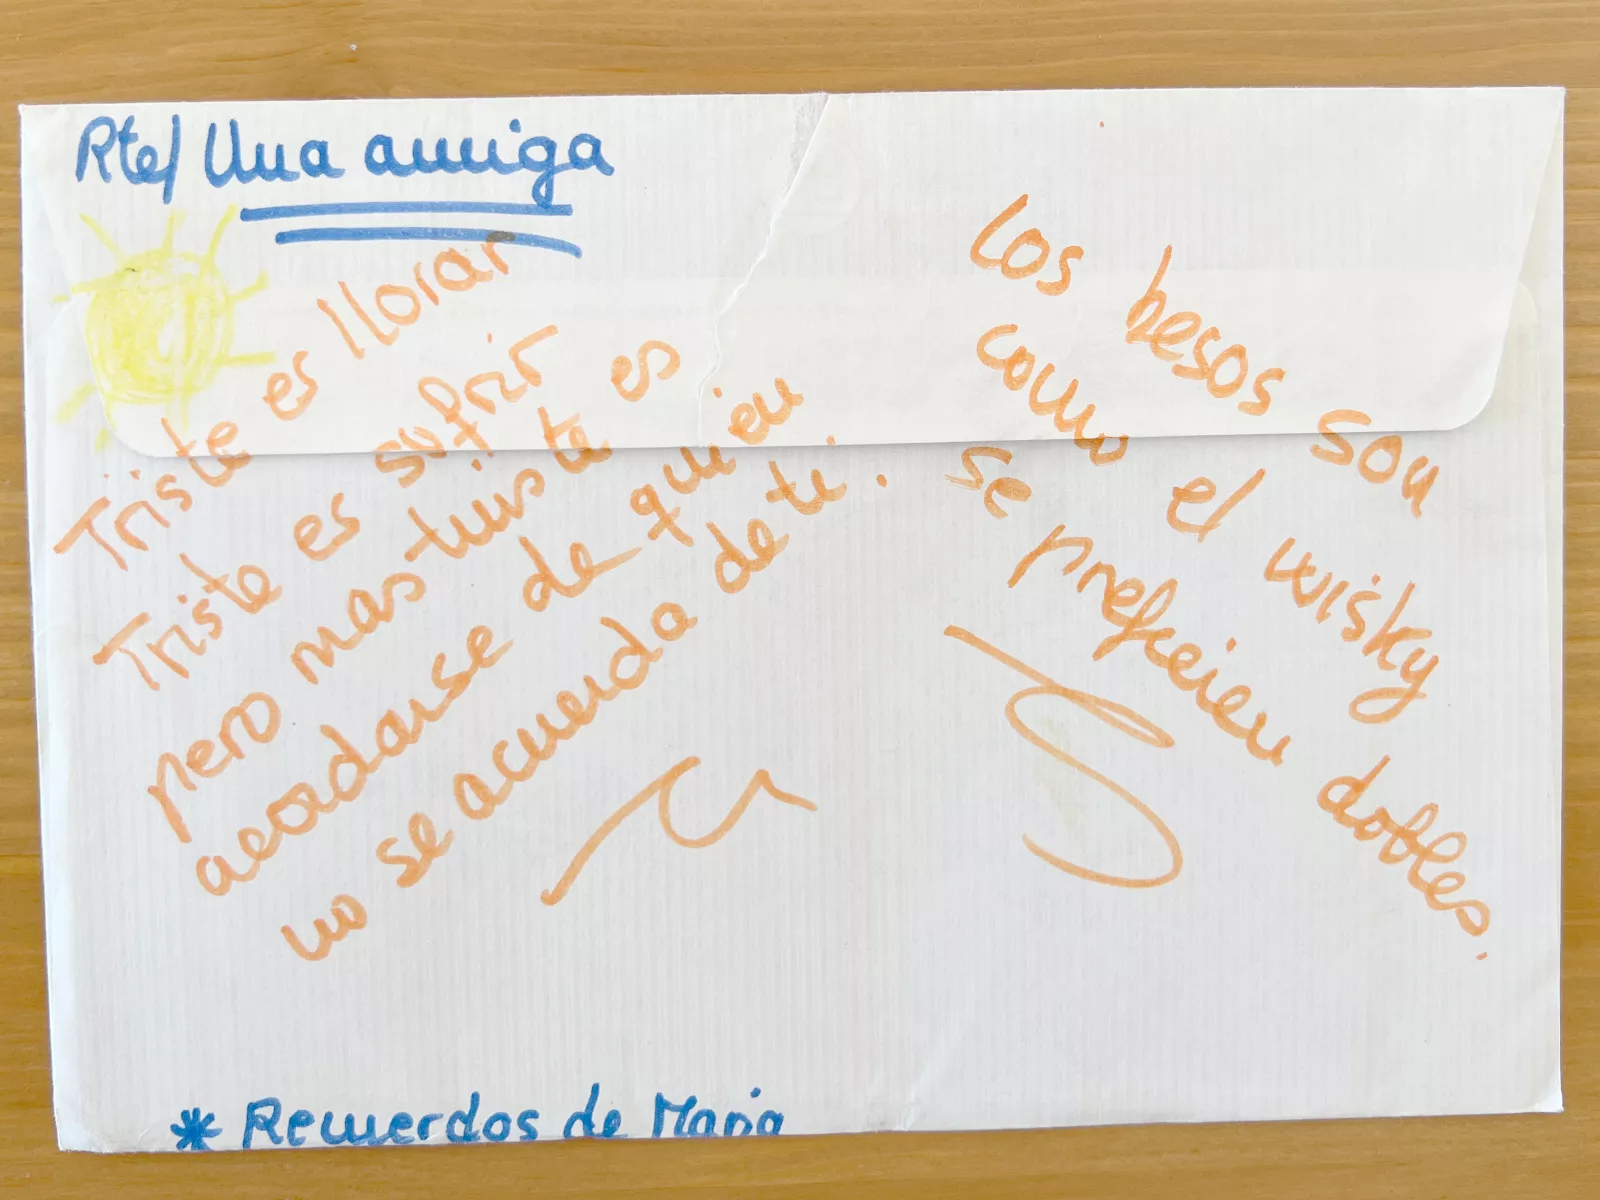 Rte/ Una amiga
Triste es llorar
Triste es sufrir
pero mas triste es
acordarse de quien
no se acuerda de ti.
Los besos son
como el wisky
se prefieren dobles.
* Recuerdos de María